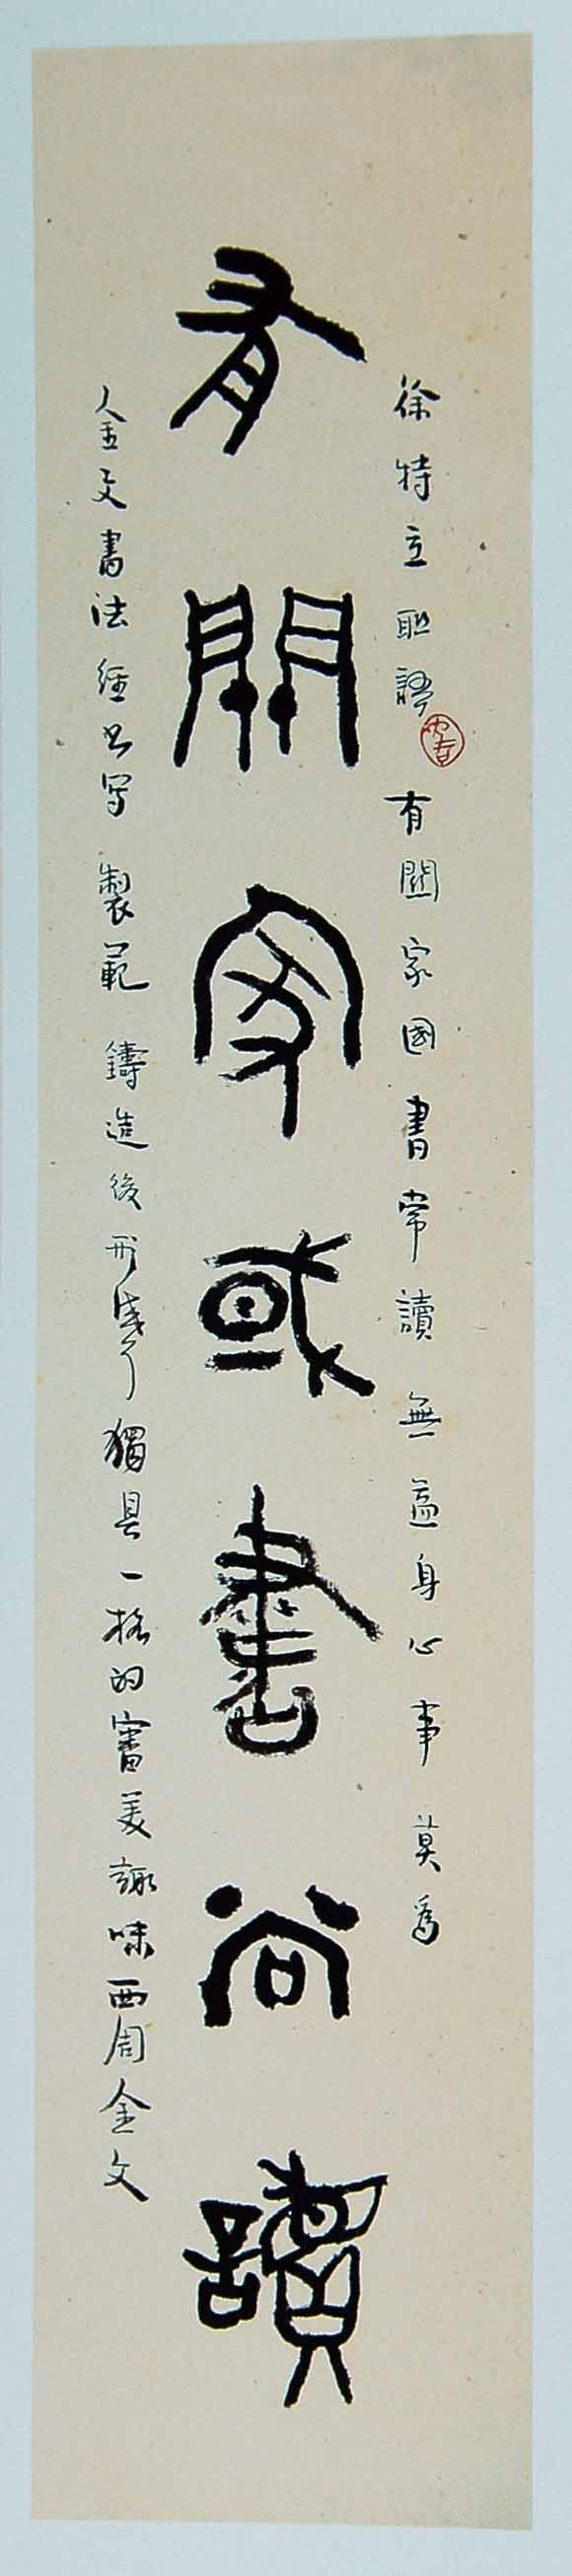 徐特立联語 有關家國書常讀 無益身心事莫為
有關家或書尚讀
金文書法經书写 製範 鑄造後形成了獨具一格的審美趣味西周金文